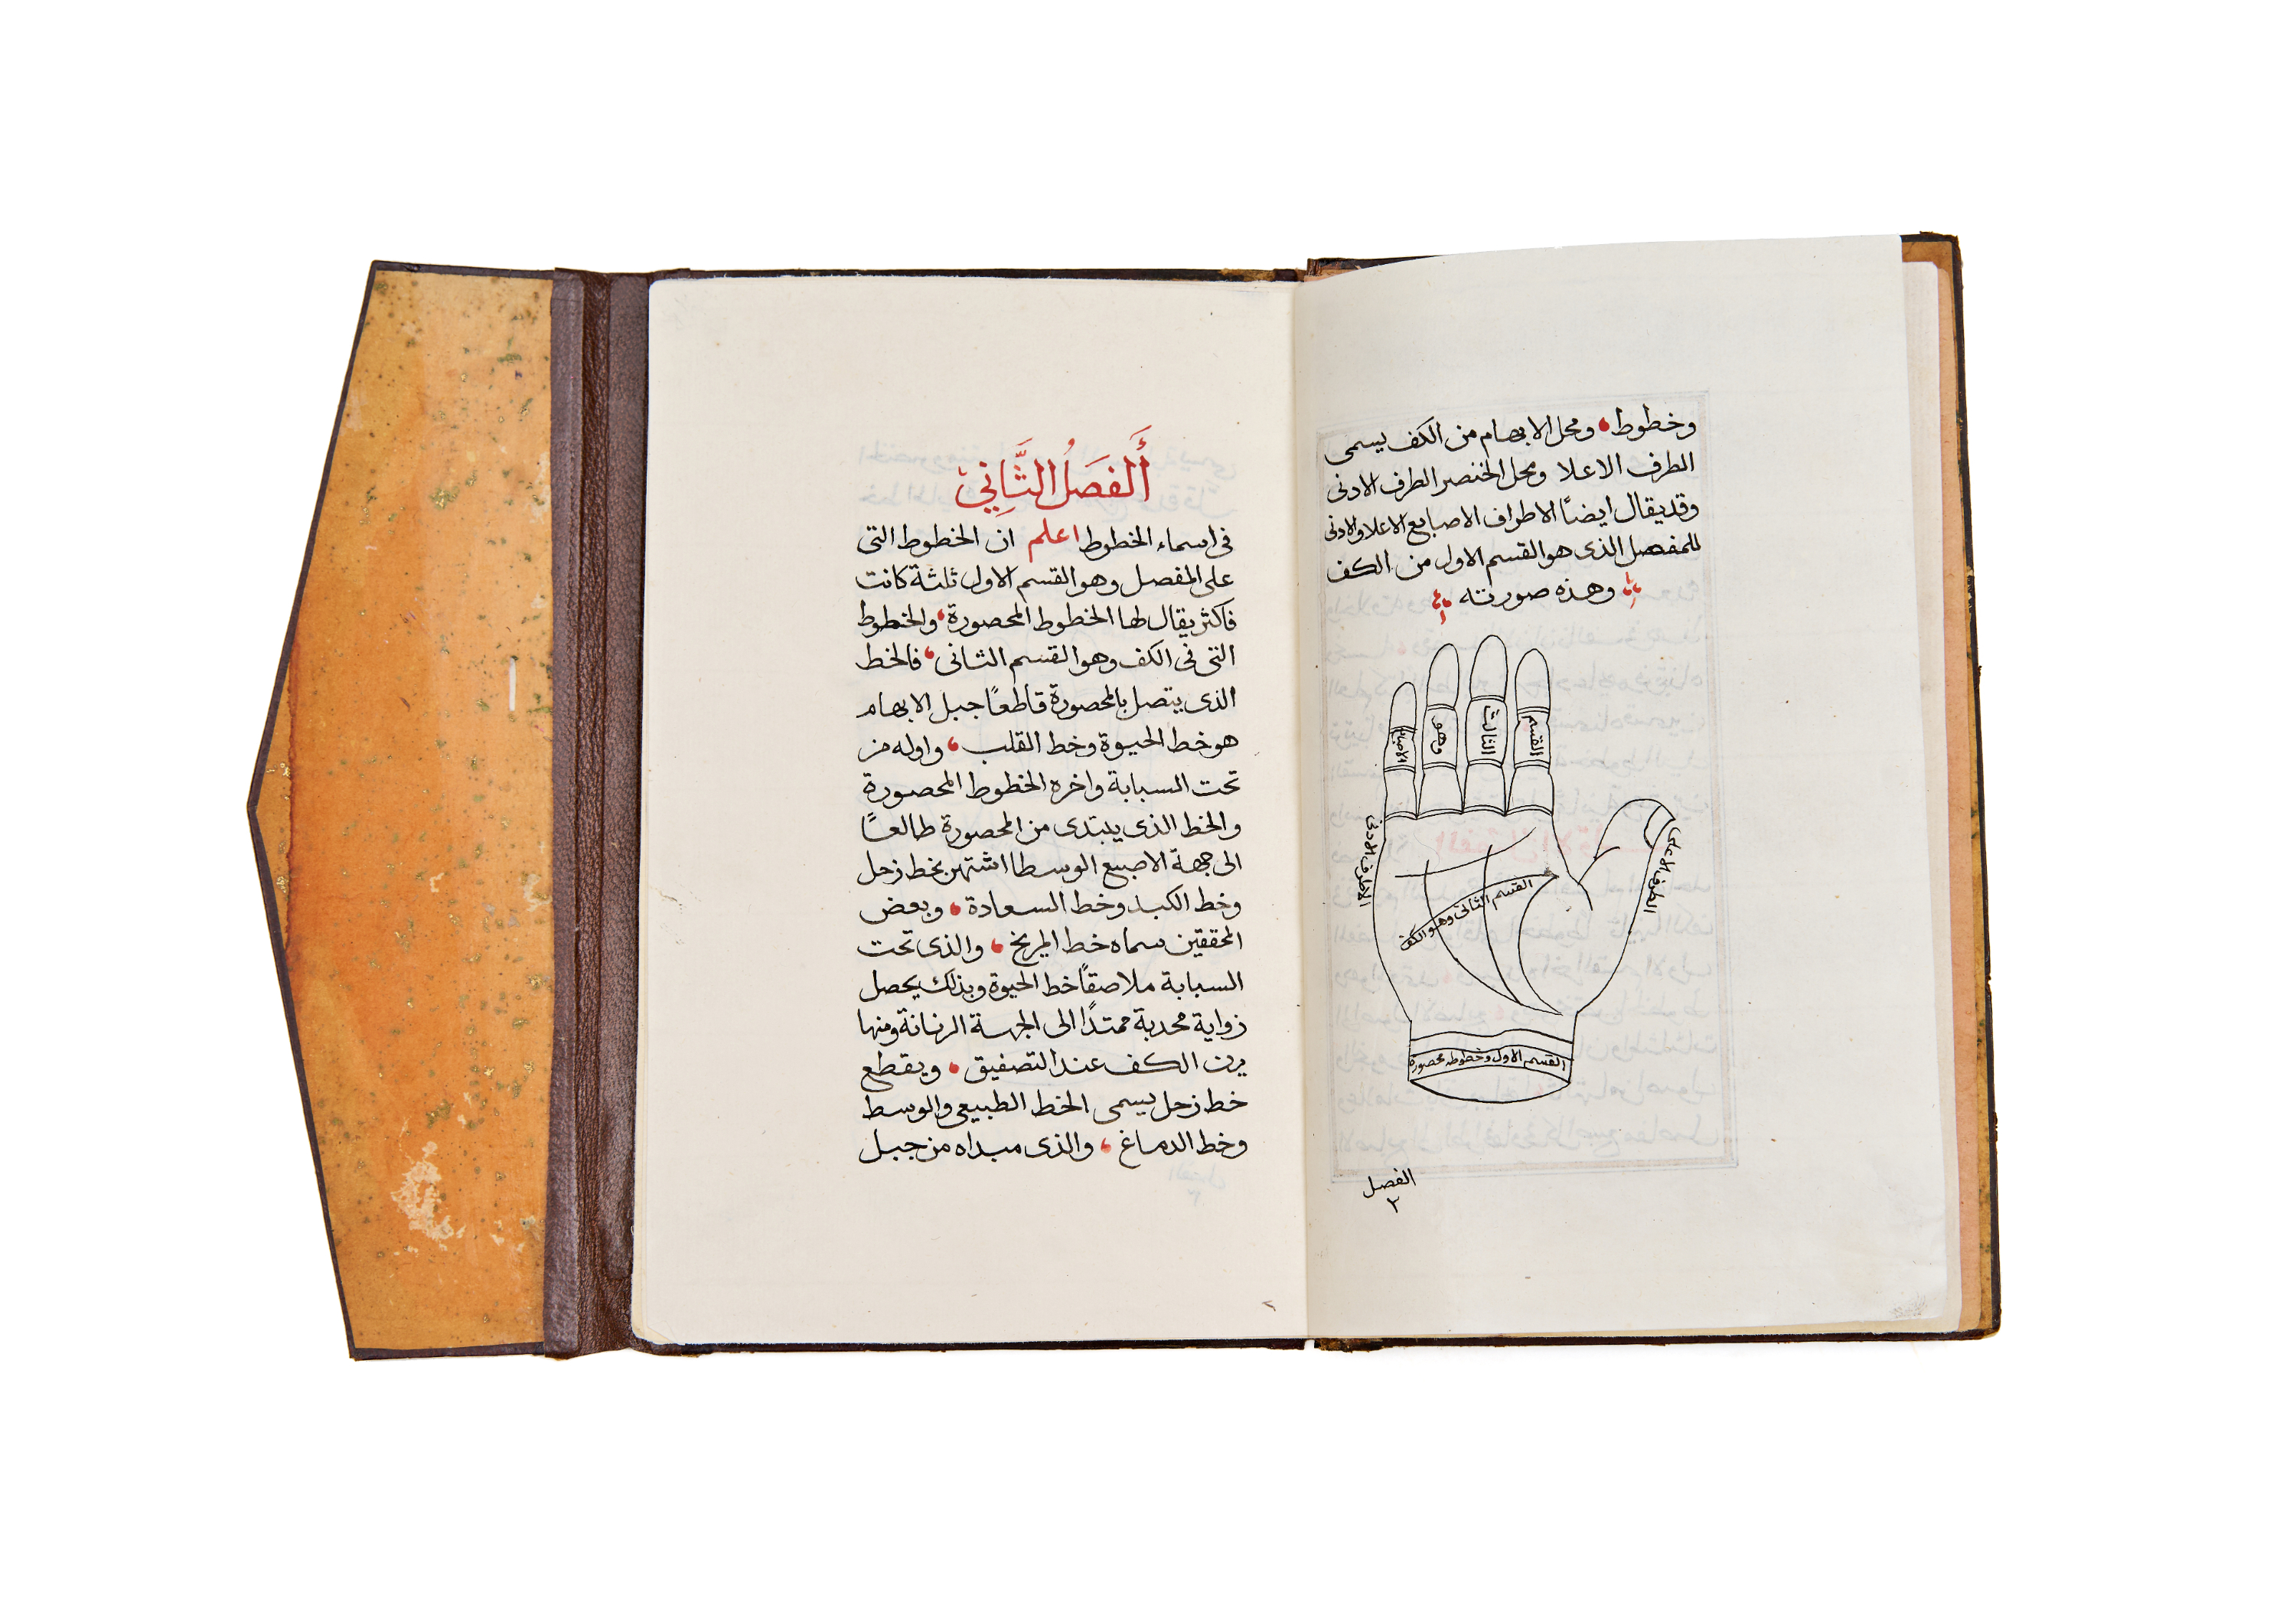 وخطوط، ومحل الابهام من الكف يسمى
الطرف الاعلا ومحل الخنصر الطرف الادنى
وقد يقال ايضًا الاطراف الاصابع الاعلا والادنى
للمفصل الذى هو القسم الاول من الكف
وهذه صورته
القسم
الثالث
وهو
الاصابع
الطرف الاعلى
الطرف الادنى
القسم الثانى وهو الكف
القسم الاول وخطوطه محصورة
الفصل
٢
أَلفَصَلُ الثَّانِي
فى اسماء الخطوط اعلم ان الخطوط التى
على المفصل وهو القسم الاول ثلثة كانت
فاكثر يقال لها الخطوط المحصورة، والخطوط
التى فى الكف وهو القسم الثانى، فالخط
الذى يتصل بالمحصورة قاطعًا جبل الابهام
هو خط الحيوة وخط القلب، واوله من
تحت السبابة واخره الخطوط المحصورة
والخط الذى يبتدى من المحصورة طالعًا
الى جهة الاصبع الوسطا اشتهر بخط زحل
وخط الكبد وخط السعادة، وبعض
المحققين سماه خط المريخ، والذى تحت
السبابة ملاصقًا خط الحيوة وبذلك يحصل
زواية محدبة ممتدًا الى الجهة الرنانة ومنها
يرن الكف عند التصفيق، ويقطع
خط زحل يسمى الخط الطبيعى والوسط
وخط الدماغ، والذى مبداه من جبل